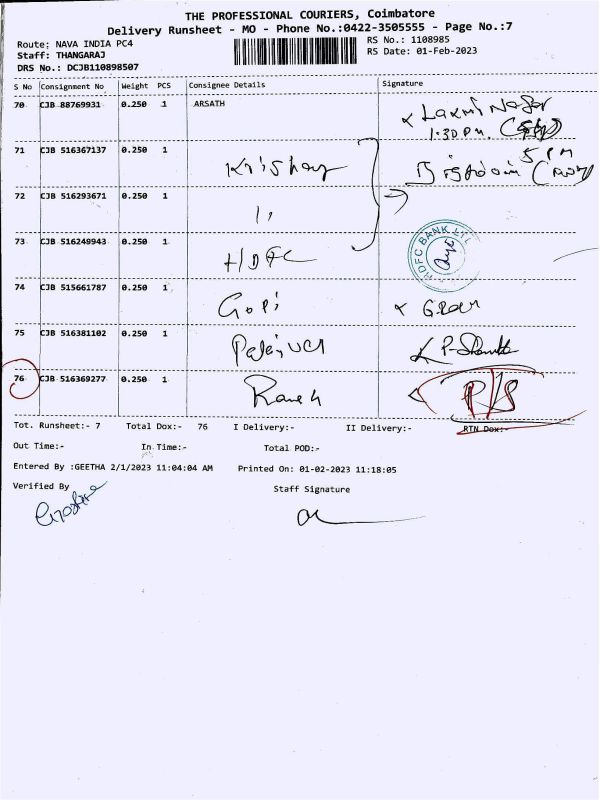 THE PROFESSIONAL COURIERS, Coimbatore
Delivery Runsheet - MO - Phone No.:0422-3505555 - Page No.:7
Route: NAVA INDIA PC4
Staff: THANGARAJ
DRS No.: DCJB110898507
RS No.: 1108985
RS Date: 01-Feb-2023
S No Consignment No Weight PCS Consignee Details Signature
70 CJB 88769931 0.250 1 ARSATH Laxmi Nagar
1:30 P.M.
71 CJB 516367137 0.250 1 5 PM
72 CJB 516293671 0.250 1 "
73 CJB 516249943 0.250 1 HDFC HDFC BANK LTD
74 CJB 515661787 0.250 1 Gopi
75 CJB 516381102 0.250 1
76 CJB 516369277 0.250 1 Ramesh
Tot. Runsheet:- 7 Total Dox:- 76 I Delivery:- II Delivery:- RTN Dox:-
Out Time:- In Time:- Total POD:-
Entered By :GEETHA 2/1/2023 11:04:04 AM Printed On: 01-02-2023 11:18:05
Verified By Staff Signature